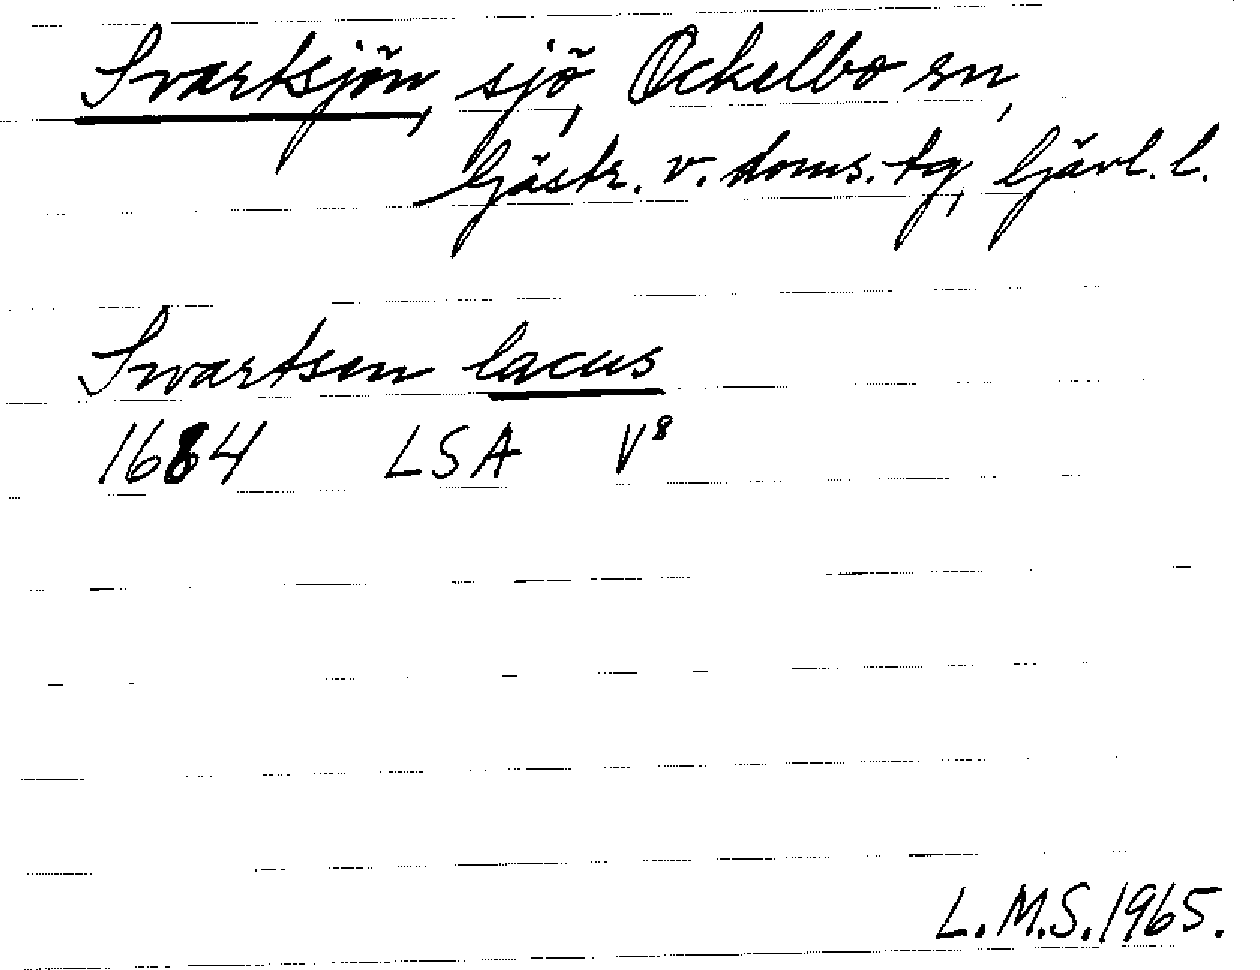 Svartsjön, sjö, Ockelbo sn,
Gästr. v. doms. tg, Gävl. l.
Swartsen lacus
1684 LSA V⁸
L.M.S. 1965.